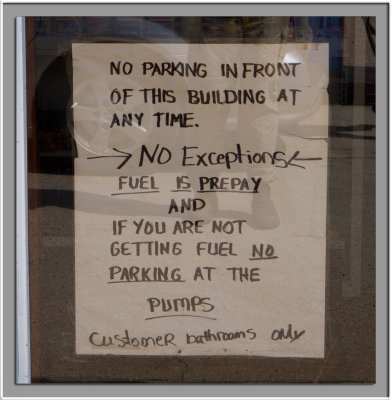 NO PARKING IN FRONT
OF THIS BUILDING AT
ANY TIME.
→ NO Exceptions ←
FUEL IS PREPAY
AND
IF YOU ARE NOT
GETTING FUEL NO
PARKING AT THE
PUMPS
Customer bathrooms only